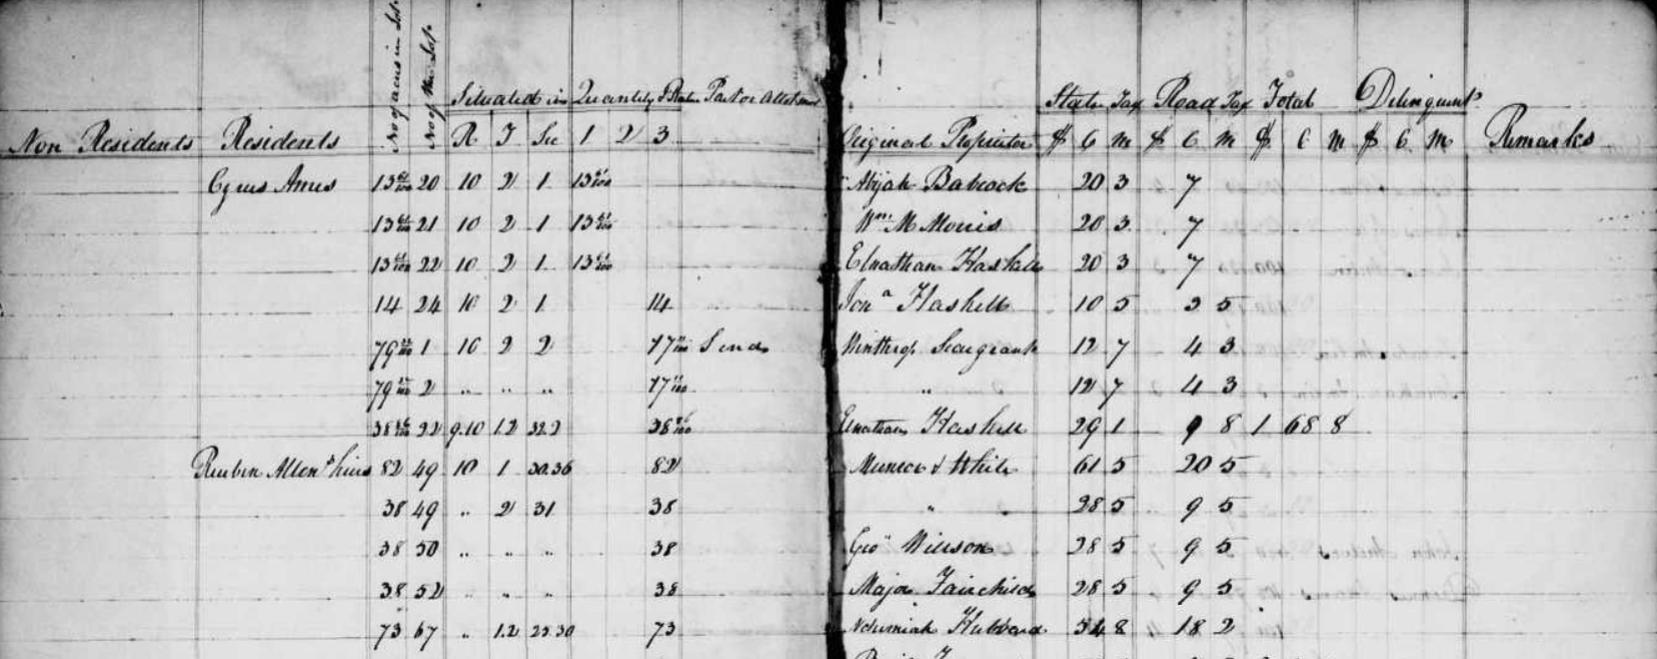 No of acres in Lot
No of the Lot
Situated in Quantity & Rate Part or Allotment State Tax Road Tax Total Delinquent
Non Residents Residents R T Sec 1 2 3 Original Proprietor $ C m $ C m $ C m $ C m Remarks
Cyrus Ames 13 61/100 20 10 2 1 13 61/100 Abijah Babcock 20 3 7
13 61/100 21 10 2 1 13 61/100 Wm. M Morris 20 3 7
13 61/100 22 10 2 1 13 61/100 Elnathan Haskell 20 3 7
14 24 10 2 1 14 Jona Haskell 10 5 3 5
79 1 10 2 2 17 S end Winthrop Seargeant 12 7 4 3
79 2 " " " 17 " 12 7 4 3
38 22 9.10 1.2 32.2 38 Elnathan Haskell 29 1 9 8 1 68 8
Reuben Allen's heirs 82 49 10 1 30.36 82 Munroe & White 61 5 20 5
38 49 " 2 31 38 " 28 5 9 5
38 50 " " " 38 Geo Willson 28 5 9 5
38 52 " " " 38 Major Fairchild 28 5 9 5
73 67 " 1.2 25.30 73 Nehemiah Hubbard 54 8 18 2